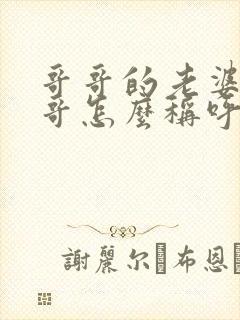 哥哥的老婆
哥怎麼稱呼
謝麗尔·布恩